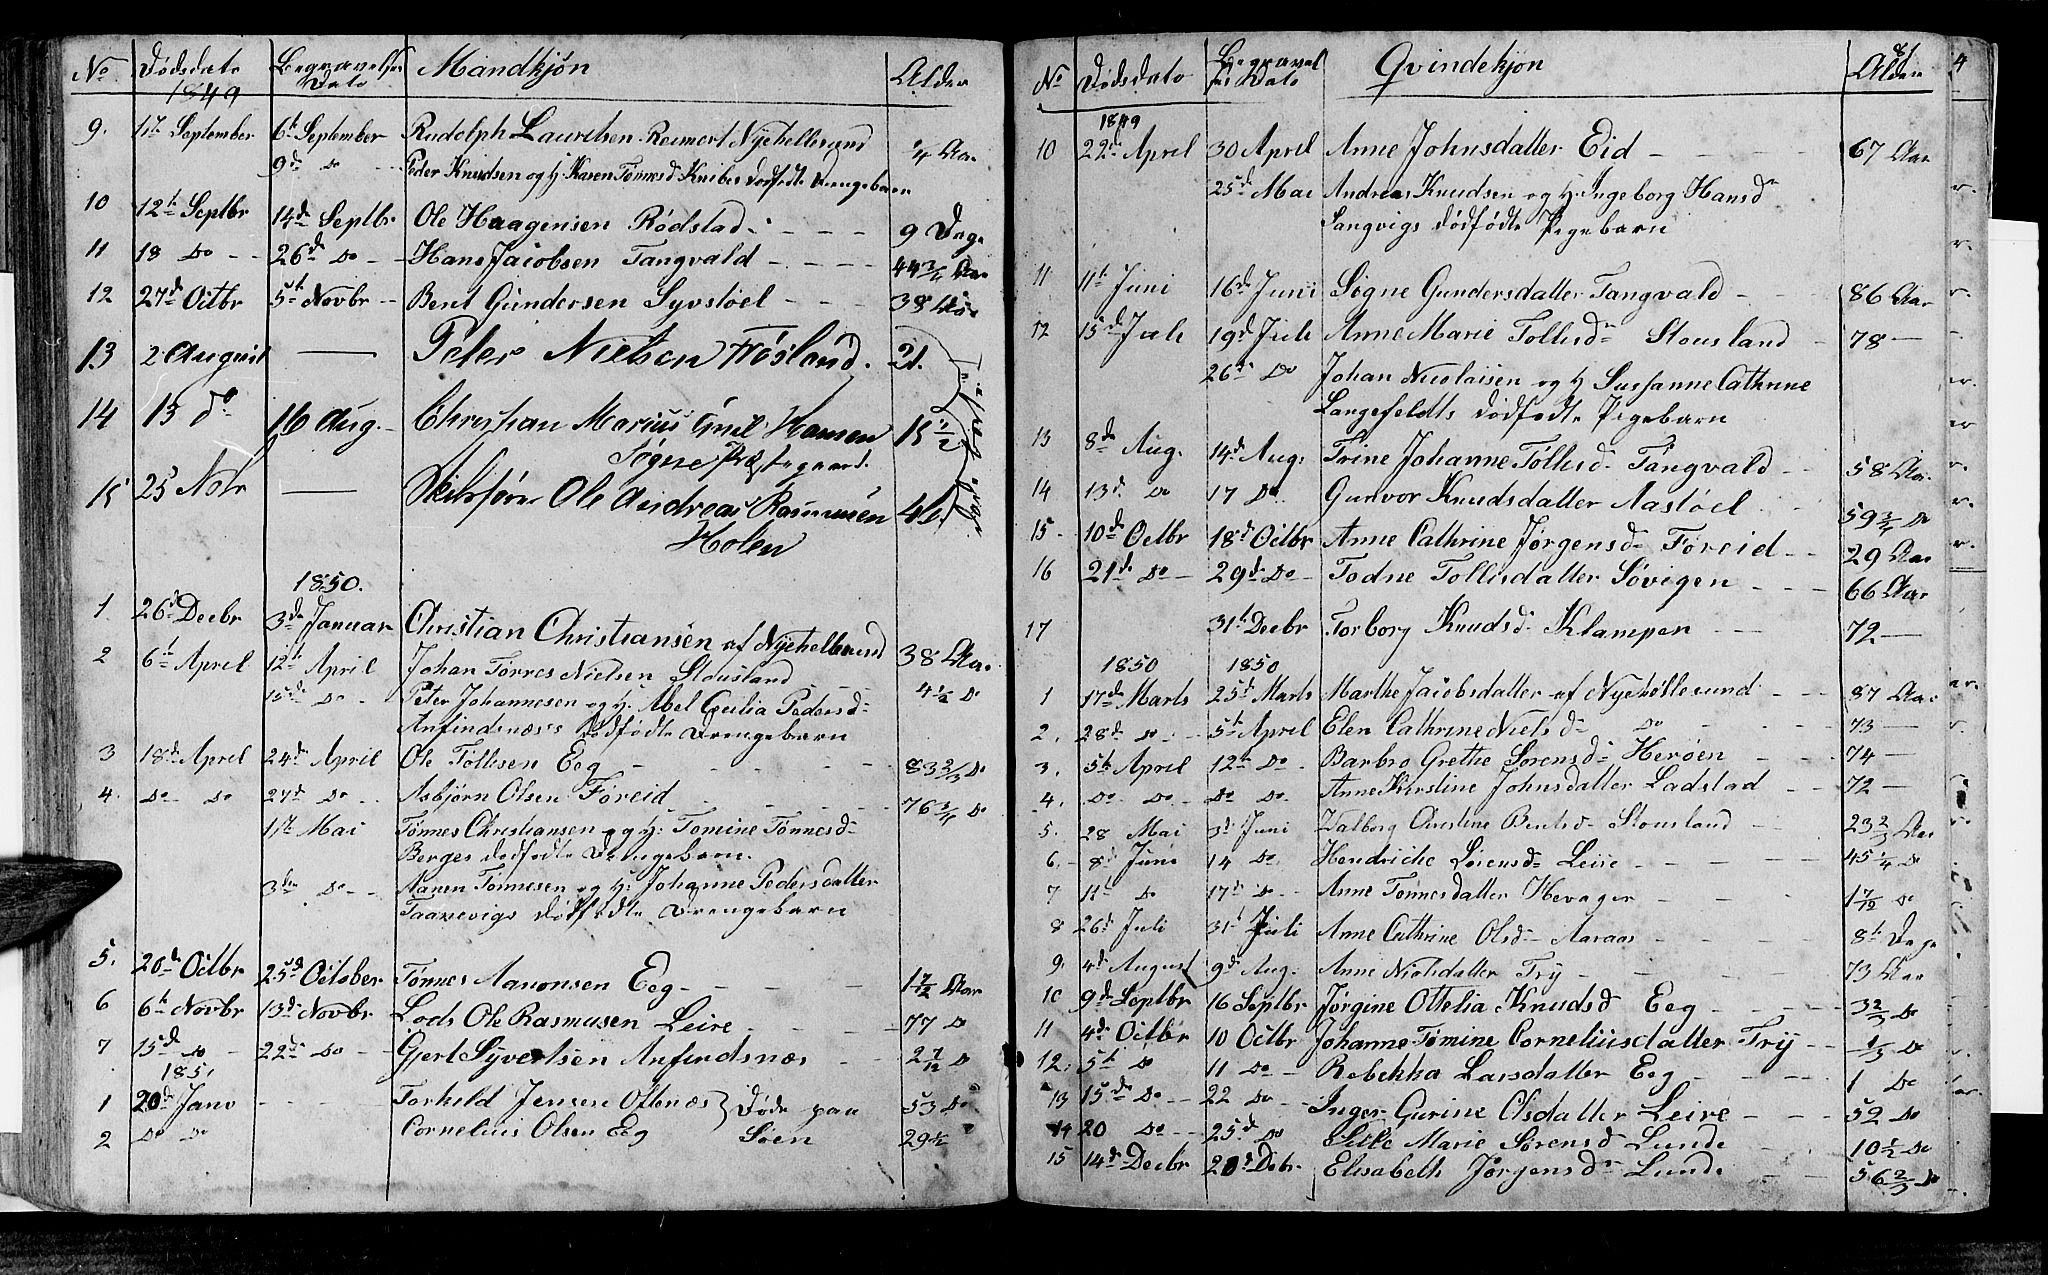 No. Dødsdato Begravelses Dato Mandkjøn Alder
1849
9. 1te September 6te September Rudolph Lauretsen Reimert Nyehellesund ¼ Aar
9de Do Peder Knudsen og H: Karen Tønnesd Knibes dødfødte Drengebarn
10 12te Septbr 14de Septbr Ole Haagensen Rødstad - - - - 9 Dage
11 18 Do - - 26de Do - - Hans Jacobsen Tangvald - - - - 44¾ Aar
12 27de Octbr 5te Novbr - - Bent Gundersen Syvstøel - - - 38 Aar
13 2 August — Peter Nielsen Høsland. 21.
14 13 do 16 Aug. Christian Marius Emil Hansen 15½
Søgne Præstegaard.
15 25 Nobr — Skibsfører Ole Andreas Rasmussen 46.
Holen
1850.
1 26de Decbr 3de Januar Christian Christiansen af Nyehellesund 38 Aar
2 6te April 12te April Johan Tørres Nielsen Stousland 4½ Do
15de Do - Peter Johannesen og H: Abel Cecilia Pedersd-
Anfindsnæs's dødfødte Drengebarn
3 18de April 24de April Ole Tollisen Eeg - - - - 83⅔ Do
4. Do Do 27de Do - - Asbjørn Olsen Føreid - - - - 76¾ Do
1te Mai Tønnes Christiansen og H: Tomine Tønnesd-
Berges dødfødte Drengebarn.
3de Do - - Aanen Tønnesen og H: Johanne Pedersdatter
Taanevigs dødfødte Drengebarn
5. 20de Octbr 25de October Tønnes Aanonsen Eeg - - - - 1½ Aar
6 6te Novbr 13de Novbr Lods Ole Rasmusen Leire - - - 77 Do
7 15de Do - 22de Do - Gjert Syvertsen Anfindsnæs - - 2 7/12 Do
1851
1 20de Janv - - - - Torkild Jensen Oftenæs } Døde paa 53 Do
2 Do Do Cornelius Olsen Eeg Søen 29½
81
No Dødsdato Begravelses Dato Qvindekjøn Alder
1849
10 22de April 30 April Anne Johnsdatter Eid - - - - - 67 Aar
25de Mai Andreas Knudsen og H: Ingeborg Hansd-
Langvigs dødfødte Pigebarn
11 11te Juni 16de Juni Søgne Gundersdatter Tangvald - - 86 Aar
12 15de Juli 19de Juli Anne Marie Tollisd- Stousland - 78 —
26de Do Johan Nicolaisen og H Sussanne Cathrine
Langefeldts dødfødte Pigebarn
13 8de Aug. 14de Aug. Trine Johanne Tollisd- Tangvald - - 58 Aar
14 13de Do 17 Do. Gunvor Knudsdatter Aastøel - - 59¾ Do
15 - 10de Octbr 18de Octbr Anne Cathrine Jørgensd- Føreid - - 29 Aar
16 21de Do - 29de Do - Todne Tollisdatter Søvigen - - 66 Aar
17 31te Decbr Torborg Knudsd- Klampen - - 72 —
1850 1850
1 17de Marts 25de Marts Marthe Jacobsdatter af Nyehøllesund - - 87 Aar
2. 28de Do - 5te April Elen Cathrine Nielsd- Do - - 73 —
3. 5te April 12te Do - Barbro Grethe Sørensd- Herøen - - 74 —
4. Do Do - Do Do - Anne Kirstine Johnsdatter Ladstad - - 72 —
5. 28 Mai 3de Juni Valborg Christine Bentsd- Stousland - - 23⅔ Aar
6. - 8de Juni 14 Do. Hendriche Sørensd- Leire - - - 45¼ Do
7 11te Do 17de Do - Anne Tønnesdatter Hevager - - - 1 7/12 Do
8 26de Juli 31te Juli Anne Cathrine Olsd- Aaraas - - - - 8te Dage
9. 4de August 9de Aug. Anne Nielsdatter Try - - - - 73 Aar
10 9de Septbr 16 Septbr Jørgine Ottelia Knudsd Eeg - - - - 3⅔ Do
11 4de Octbr 10 Octbr Johanne Tomine Corneliusdatter Try - - ⅓ Do
12. 5te Do 11 Do - - Rebekka Larsdatter Eeg - - - - 1 Do
13 15de Do - - 22 Do - - Inger Gurine Olsdatter Leire - - - 52 Do
14 20 Do - - 25de Do Marie Sørensd Lunde - - 10½ Do
15 14de Decbr 20de Debr. Elisabeth Jørgensd- Lunde - - 56⅔ Do